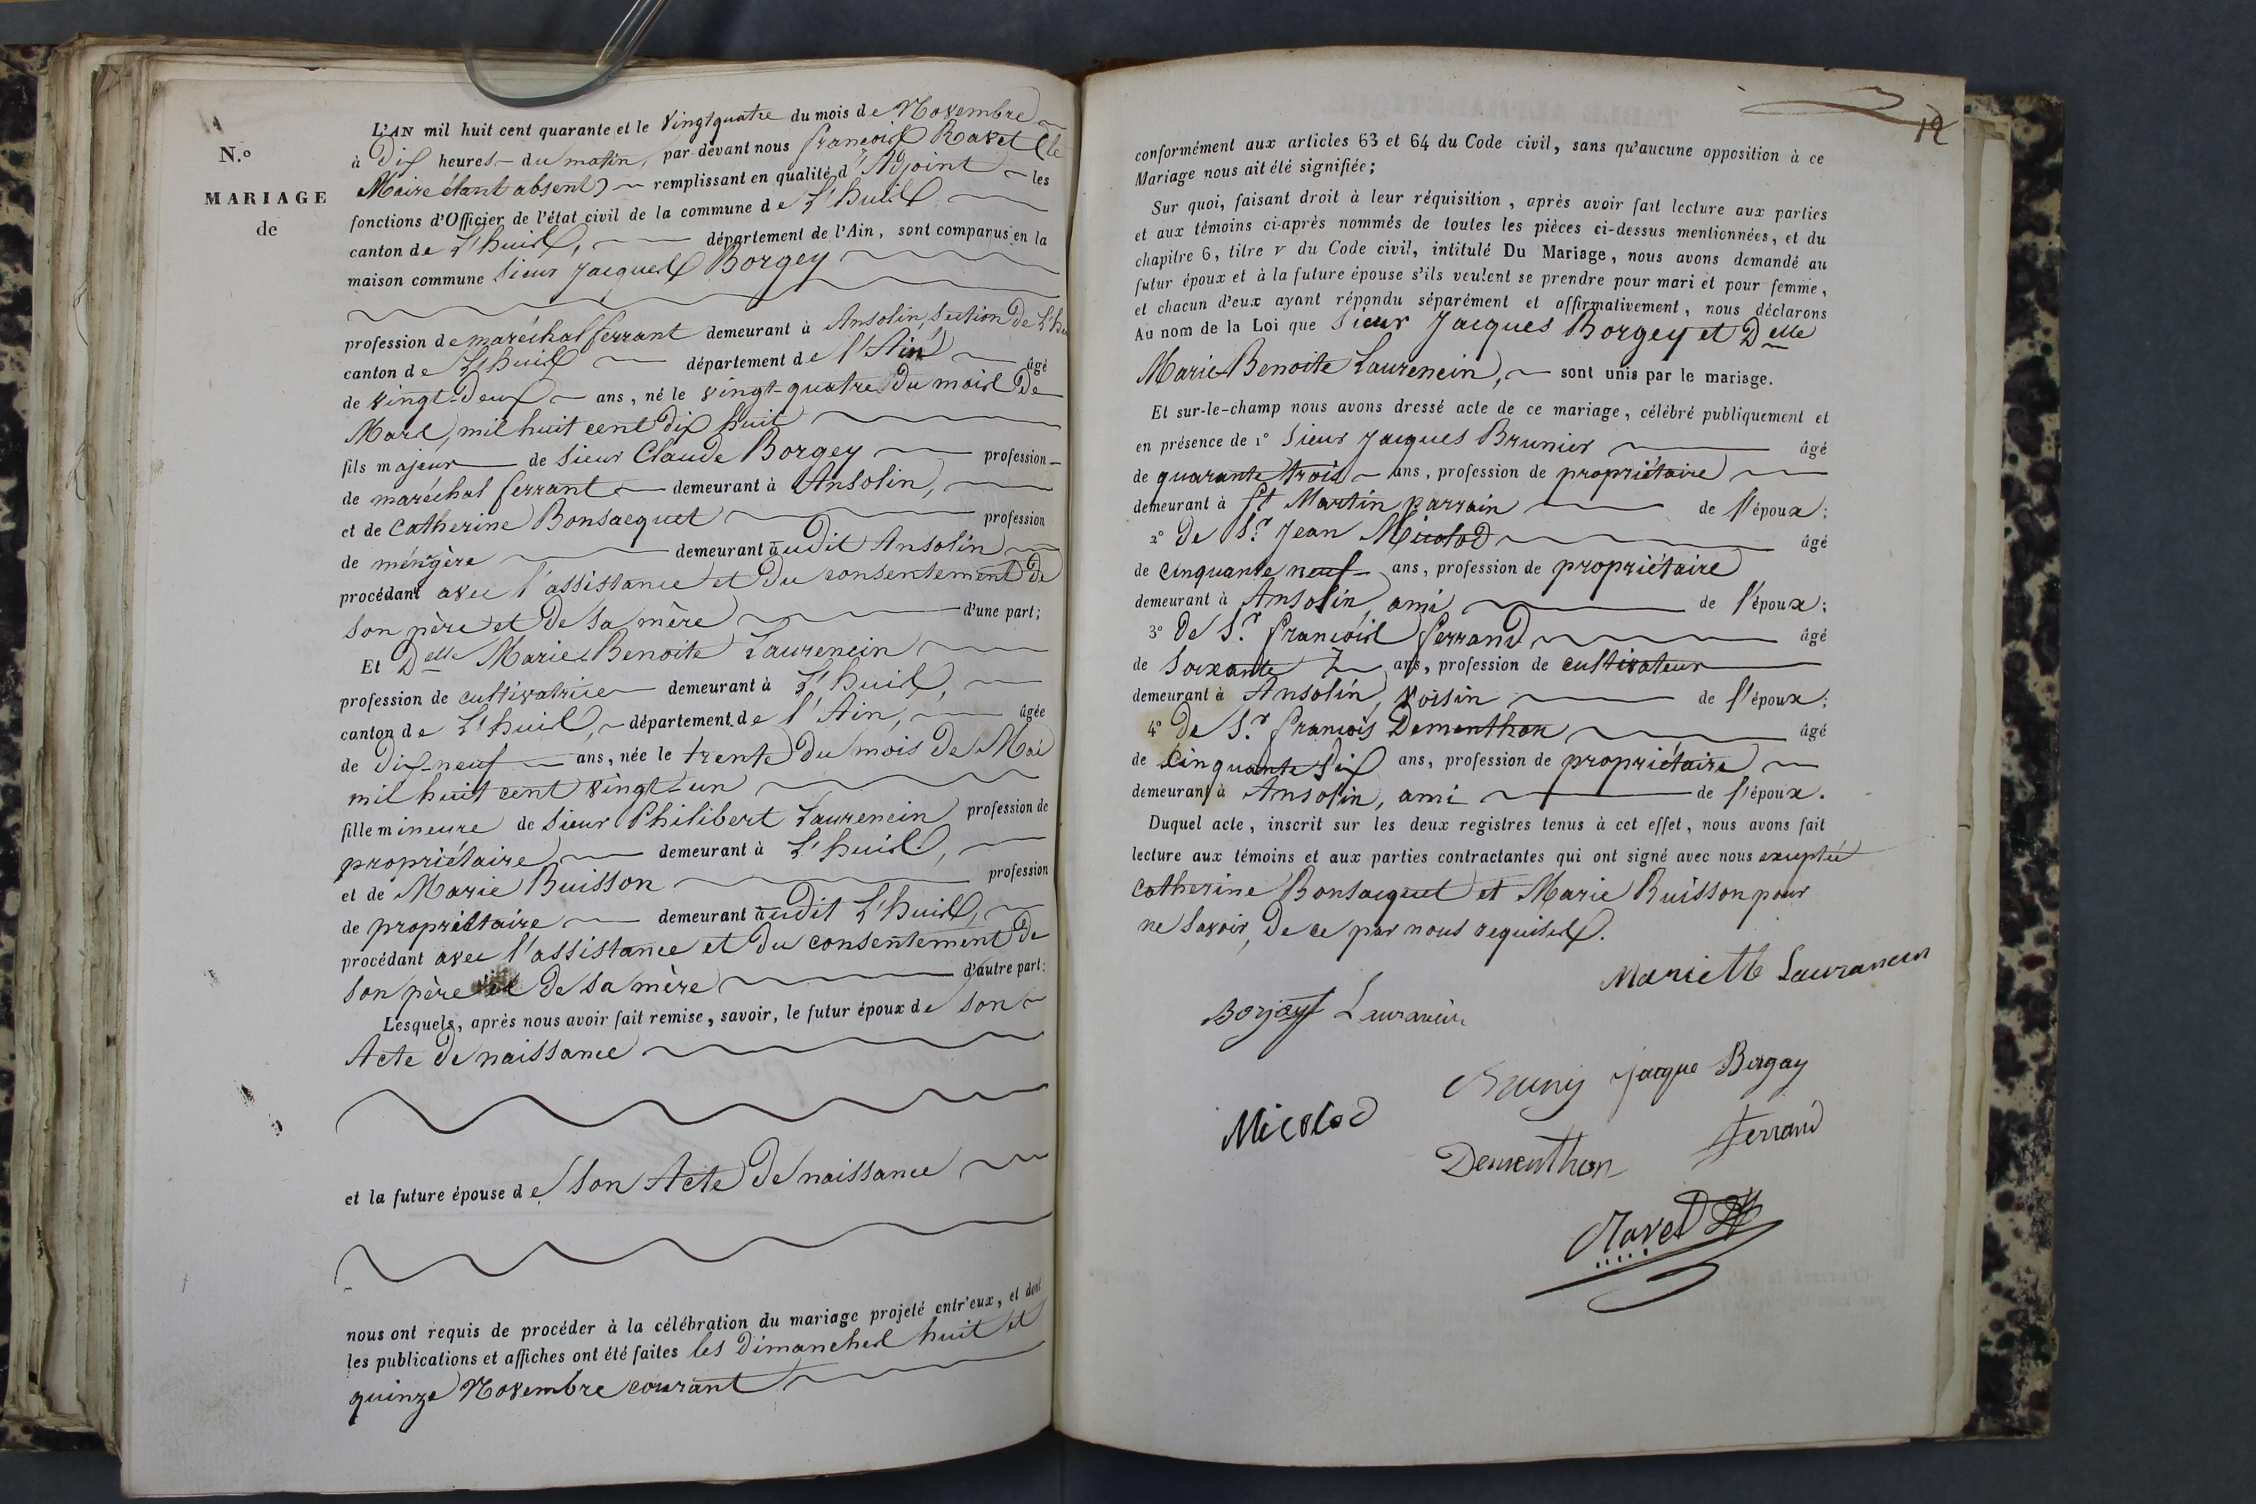 N.º
MARIAGE
de
L'AN mil huit cent quarante et le vingt quatre du mois de Novembre
à dix heures du matin, par-devant nous françois Ravet (le
Maire étant absent) remplissant en qualité d'Adjoint les
fonctions d'Officier de l'état civil de la commune de L'huis
canton de L'huis, département de l'Ain, sont comparus en la
maison commune Sieur Jacques Borgey
profession de maréchal ferrant demeurant à Ansolin, Section de L'hu
canton de L'huis département de l'Ain âgé
de vingt-deux ans, né le vingt-quatre du mois de
Mars, mil huit cent dix huit
fils majeur de Sieur Claude Borgey profession
de maréchal ferrant demeurant à Ansolin,
et de Catherine Bonsacquet profession
de ménagère demeurant audit Ansolin
procédant avec l'assistance et du consentement de
son père et de sa mère d'une part;
Et Delle Marie Benoite Laurencin
profession de cultivatrice demeurant à L'huis,
canton de L'huis, département de l'Ain, âgée
de dix-neuf ans, née le trente du mois de Mai
mil huit cent vingt un
fille mineure de Sieur Philibert Laurencin profession de
propriétaire demeurant à L'huis,
et de Marie Buisson profession
de propriétaire demeurant audit L'huis,
procédant avec l'assistance et du consentement de
son père et de sa mère d'autre part:
Lesquels, après nous avoir fait remise, savoir, le futur époux de son
Acte de naissance
et la future épouse de son Acte de naissance
nous ont requis de procéder à la célébration du mariage projeté entr'eux, et dont
les publications et affiches ont été faites les dimanches huit et
quinze Novembre courant
12
conformément aux articles 63 et 64 du Code civil, sans qu'aucune opposition à ce
Mariage nous ait été signifiée;
Sur quoi, faisant droit à leur réquisition, après avoir fait lecture aux parties
et aux témoins ci-après nommés de toutes les pièces ci-dessus mentionnées, et du
chapitre 6, titre v du Code civil, intitulé Du Mariage, nous avons demandé au
futur époux et à la future épouse s'ils veulent se prendre pour mari et pour femme,
et chacun d'eux ayant répondu séparément et affirmativement, nous déclarons
Au nom de la Loi que Sieur Jacques Borgey et Delle
Marie Benoite Laurencin, sont unis par le mariage.
Et sur-le-champ nous avons dressé acte de ce mariage, célébré publiquement et
en présence de 1º Sieur Jacques Brunier âgé
de quarante trois ans, profession de propriétaire
demeurant à St Martin parrain de l'époux;
2º de Sr. Jean Micolod âgé
de cinquante neuf ans, profession de propriétaire
demeurant à Ansolin, ami de l'époux;
3º de Sr. françois ferrand âgé
de soixante 7 ans, profession de cultivateur
demeurant à Ansolin, voisin de l'époux;
4º de Sr. françois Dementhon, âgé
de cinquante six ans, profession de propriétaire
demeurant à Ansolin, ami de l'époux.
Duquel acte, inscrit sur les deux registres tenus à cet effet, nous avons fait
lecture aux témoins et aux parties contractantes qui ont signé avec nous exceptée
Catherine Bonsacquet et Marie Buisson pour
ne savoir, de ce par nous requises.
Mariette Laurancin
Borjay Laurancin
Jacque Bergay
Micolod
Ferrand
Dementhon
Ravet